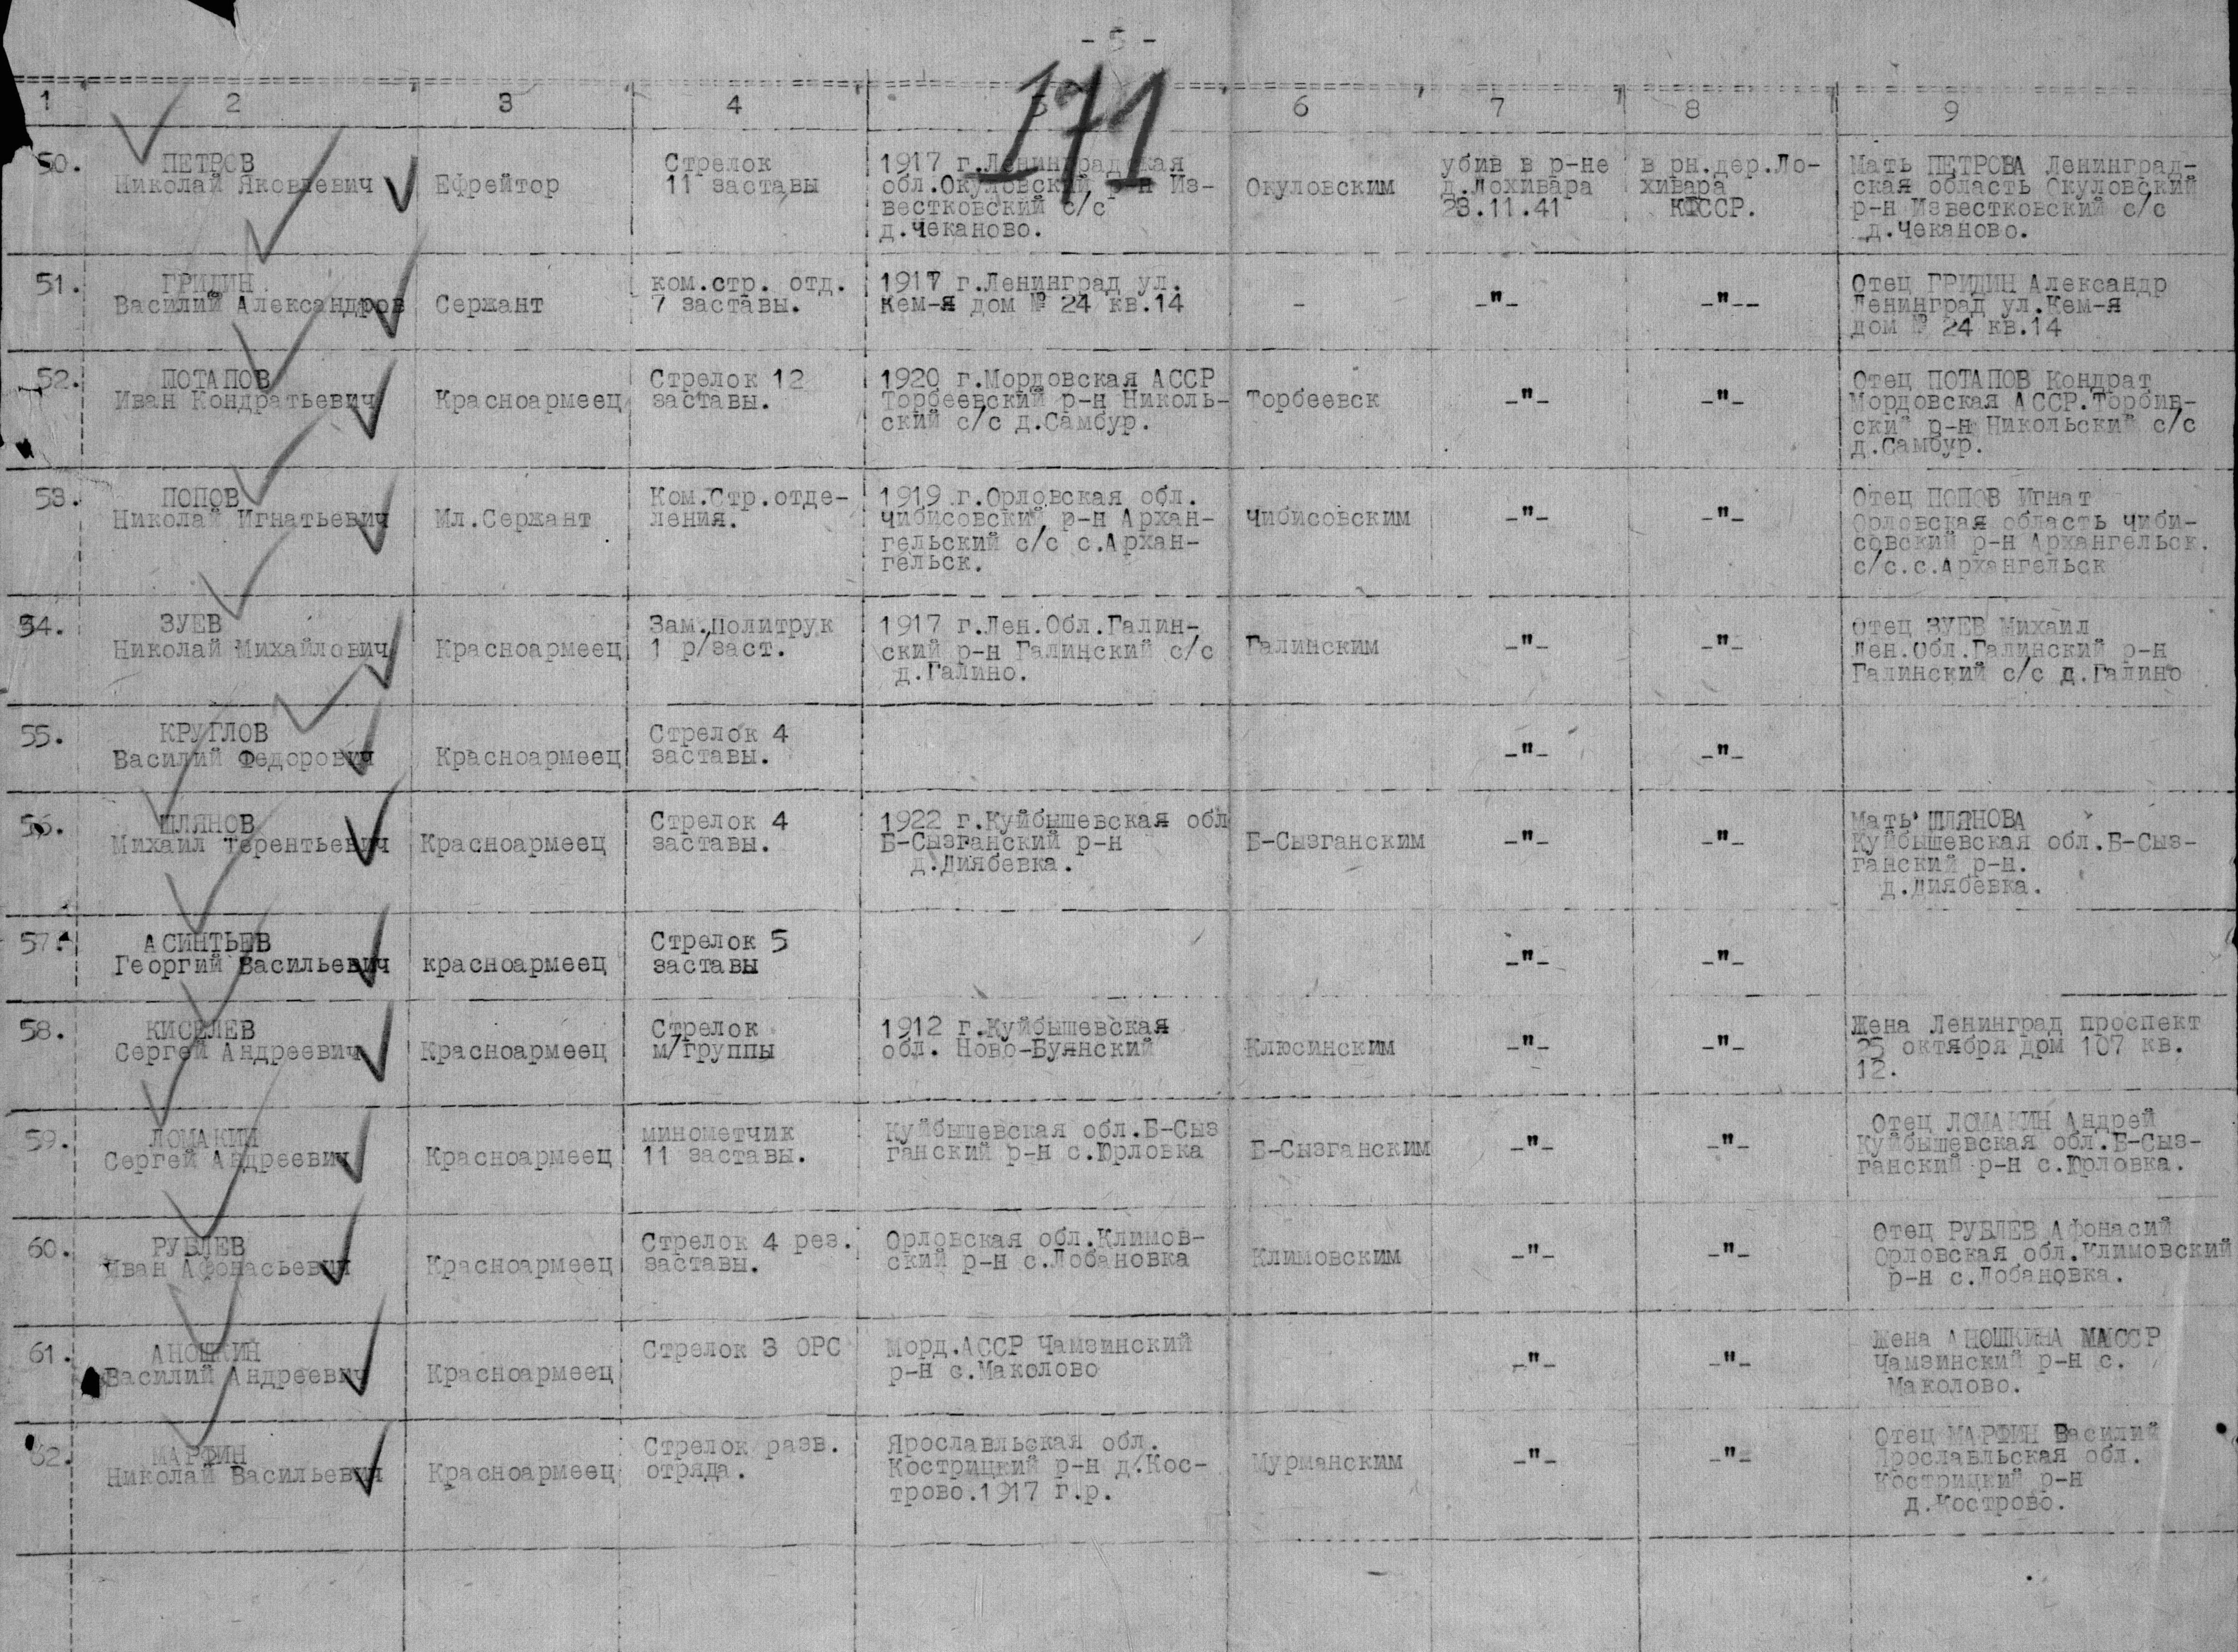 - 5 -
171
1 2 3 4 5 6 7 8 9
50. ПЕТРОВ
Николай Яковлевич
Ефрейтор
Стрелок
11 заставы
1917 г.Ленинградская
обл.Окуловский р-н Из-
вестковский с/с
д.Чеканово.
Окуловским
убив в р-не
д.Лохивара
28.11.41
в рн.дер.Ло-
хивара
КФССР.
Мать ПЕТРОВА Ленинград-
ская область Окуловский
р-н Известковский с/с
д.Чеканово.
51. ГРИДИН
Василий Александров
Сержант
ком.стр. отд.
7 заставы.
1917 г.Ленинград ул.
Кем-я дом № 24 кв.14
-
-"-
-"--
Отец ГРИДИН Александр
Ленинград ул.Кем-я
дом № 24 кв.14
52. ПОТАПОВ
Иван Кондратьевич
Красноармеец
Стрелок 12
заставы.
1920 г.Мордовская АССР
Торбеевский р-н Николь-
ский с/с д.Самбур.
Торбеевск
-"-
-"-
Отец ПОТАПОВ Кондрат
Мордовская АССР.Торбив-
ский р-н Никольский с/с
д.Самбур.
53. ПОПОВ
Николай Игнатьевич
Мл.Сержант
Ком.Стр.отде-
ления.
1919 г.Орловская обл.
Чибисовский р-н Архан-
гельский с/с с.Архан-
гельск.
Чибисовским
-"-
-"-
Отец ПОПОВ Игнат
Орловская область Чиби-
совский р-н Архангельск.
с/с.с.Архангельск
54. ЗУЕВ
Николай Михайлович
Красноармеец
Зам.Политрук
1 р/заст.
1917 г.Лен.Обл.Галин-
ский р-н Галинский с/с
д.Галино.
Галинским
-"-
-"-
Отец ЗУЕВ Михаил
Лен.Обл.Галинский р-н
Галинский с/с д.Галино
55. КРУГЛОВ
Василий Федорович
Красноармеец
Стрелок 4
заставы.
-"-
-"-
56. ШЛЯНОВ
Михаил Терентьевич
Красноармеец
Стрелок 4
заставы.
1922 г.Куйбышевская обл
Б-Сызганский р-н
д.Диябевка.
Б-Сызганским
-"-
-"-
Мать ШЛЯНОВА
Куйбышевская обл.Б-Сыз-
ганский р-н.
д.Диябевка.
57. АСИНТЬЕВ
Георгий Васильевич
красноармеец
Стрелок 5
заставы
-"-
-"-
58. КИСЕЛЕВ
Сергей Андреевич
Красноармеец
Стрелок
м/группы
1912 г.Куйбышевская
обл. Ново-Буянский
Клюсинским
-"-
-"-
Жена Ленинград проспект
25 октября дом 107 кв.
12.
59. ЛОМАКИН
Сергей Андреевич
Красноармеец
минометчик
11 заставы.
Куйбышевская обл.Б-Сыз
ганский р-н с.Юрловка
Б-Сызганским
-"-
-"-
Отец ЛОМАКИН Андрей
Куйбышевская обл.Б-Сыз-
ганский р-н с.Юрловка.
60. РУБЛЕВ
Иван Афонасьевич
Красноармеец
Стрелок 4 рез.
заставы.
Орловская обл.Климов-
ский р-н с.Лобановка
Климовским
-"-
-"-
Отец РУБЛЕВ Афонасий
Орловская обл.Климовский
р-н с.Лобановка.
61. АНОШКИН
Василий Андреевич
Красноармеец
Стрелок 3 ОРС
Морд.АССР Чамзинский
р-н с.Маколово
-"-
-"-
Жена АНОШКИНА МАССР
Чамзинский р-н с.
Маколово.
62. МАРФИН
Николай Васильевич
Красноармеец
Стрелок разв.
отряда.
Ярославльская обл.
Кострицкий р-н д.Кос-
трово.1917 г.р.
Мурманским
-"-
-"-
Отец МАРФИН Василий
Ярославльская обл.
Кострицкий р-н
д.Кострово.